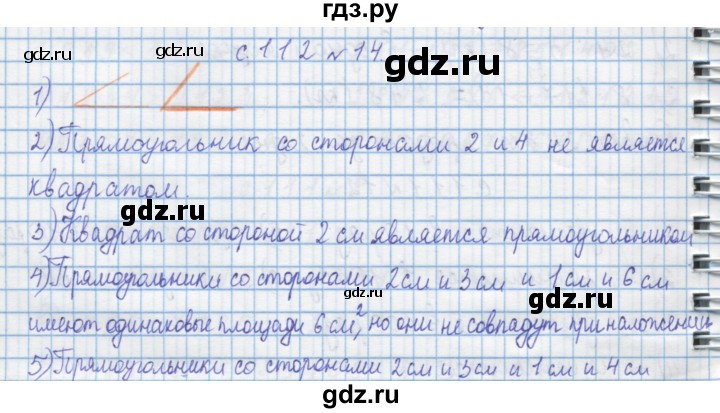 гдз.ру
с 112 №14
gdz.ru gdz.ru gdz.ru
1)
gdz.ru gdz.ru
2) Прямоугольник со сторонами 2 и 4 не является
квадратом.
gdz.ru gdz.ru
3) Квадрат со стороной 2 см является прямоугольником
gdz.ru
4) Прямоугольники со сторонами 2 см и 3 см и 1 см и 6 см
gdz.ru gdz.ru
имеют одинаковые площади 6 см², но они не совпадут при наложении
gdz.ru
5) Прямоугольники со сторонами 2 см и 3 см и 1 см и 4 см
gdz.ru